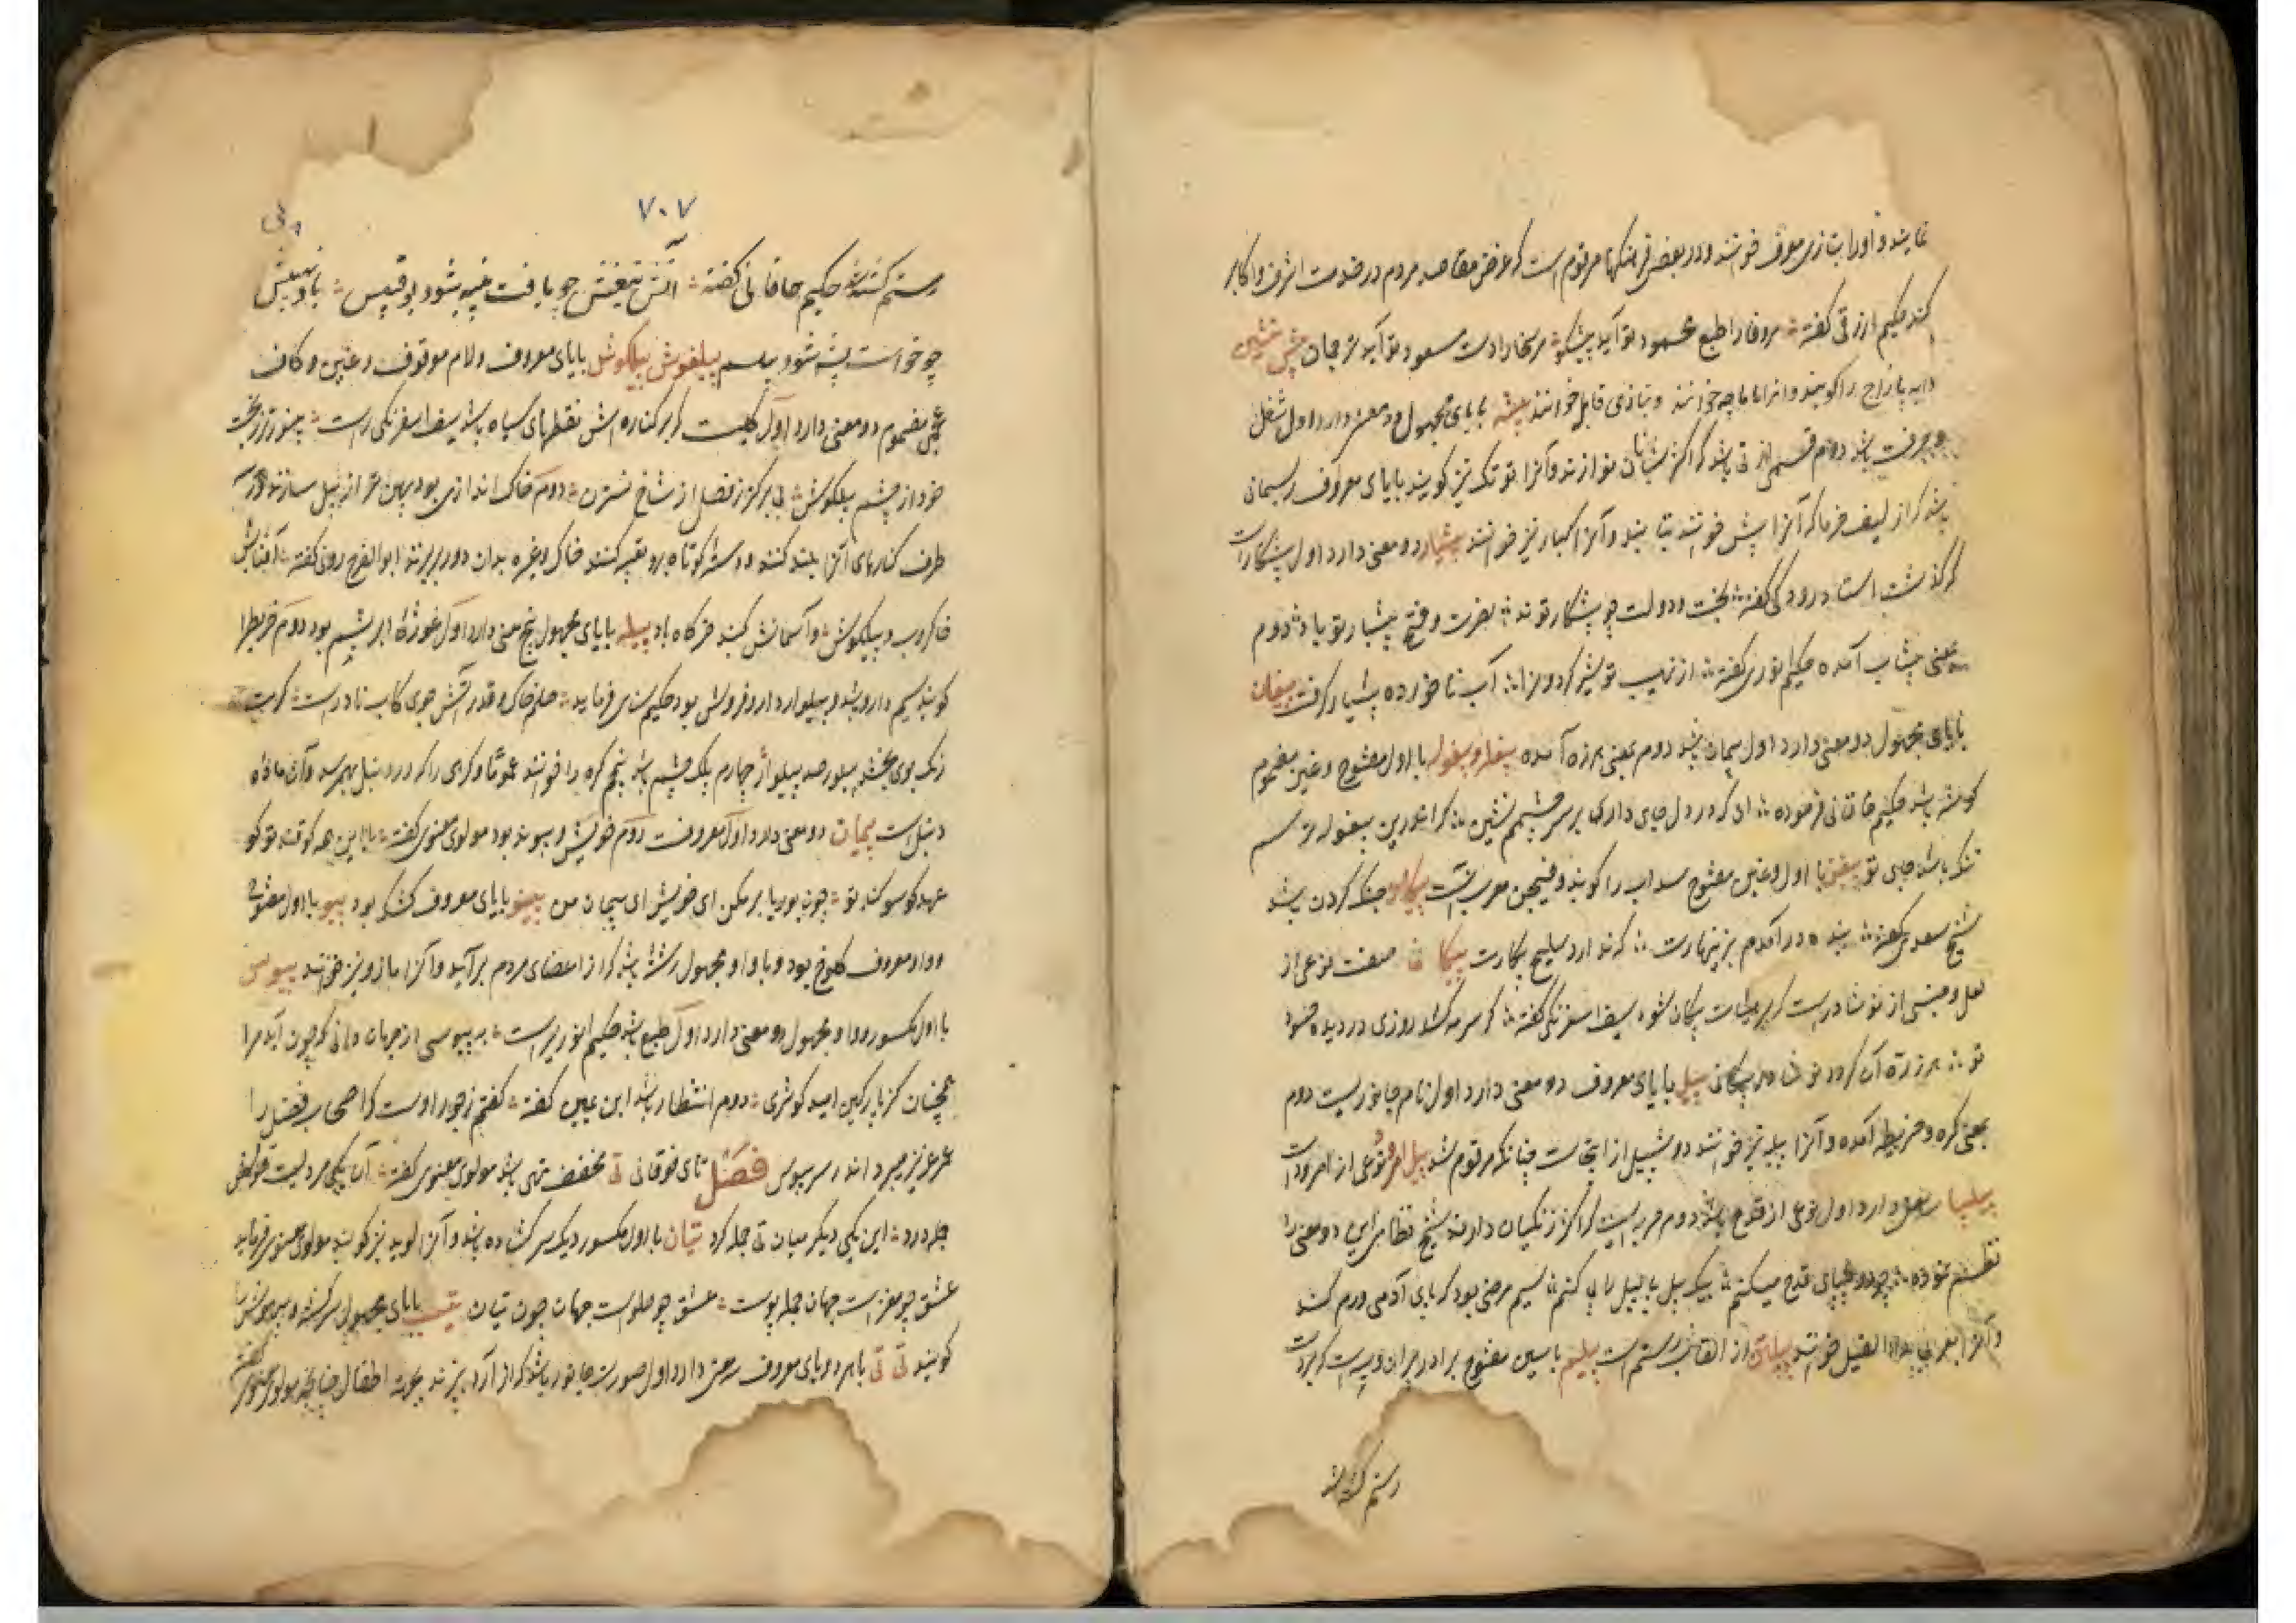 نمایند و او را بتازی معرف خوانند و در بعضی فرهنگها مرقوم است که عرض مقاصد مردم در خدمت اشرف و اکابر
کند حکیم ارزقی گفته طبع محمود تو آید پیشکو سعود تو آید ترجمان پیش نشین
دایه پازاج را گویند و انرا ماماچه خوانند و بتازی قابله خوانند پیشه بایای مجهول دو معنی دارد اول شغل
و حرفت باشد دوم قسمی از نی باشد که اکثر شبانان نوازند و آنرا توتک نیز گویند بایای معروف ریسمانی
باشد که از لیف خرما که آنرا پیش خوانند بتابند و آنرا کبار نیز خوانند پیشیار دو معنی دارد اول پیشکار است
که گذشت استاد رودکی گفته بخت و دولت چو پیشکار تواند نصرت و فتح پیشیار تو باد دوم
بمعنی پیشاب آمده حکیم انوری گفته از نهیب تو شیر گردون را آب ناخورده پیشیار گرفت پیغان
بایای مجهول دو معنی دارد اول پیمان باشد دوم بمعنی هرزه آمده پیغله و پیغوله با اول مفتوح و غین مضموم
گوشه باشد حکیم خاقانی فرموده ای که در دل جای داری بر سر چشمم نشین کاندرین بیغوله ترسم
تنگ باشد جای تو پیغن با اول و غین مفتوح سداب را گویند و فیجن معرب آنست پیکار جنگ کردن باشد
شیخ سعدی گفته بنده در آمدم بزینهارت که ندارد سلیح پیکارت پیکانی صفت نوعی از
لعل و جنسی از نوشادر است که بهیئات پیکان شود سیف اسفرنگی گفته گر سرمه کشد روزی در دیده حسود
تو هر ذره آن گردد نوشادر پیکانی پیل بایای معروف دو معنی دارد اول نام جانوریست دوم
بمعنی گره و خریطه آمده و آنرا پیله نیز خوانند دو شپیل از اینجاست چنانکه مرقوم شد پیل امرود نوعی از امرود است
پیلپا سه معنی دارد اول نوعی از قدح باشد دوم حربه ایست که اکثر زنگیان دارند شیخ نظامی این دو معنی را
نظم نموده چو در پیلپای قدح می کنم بیک پیل پا پیل را پی کنم سیم مرضی بود که پای آدمی ورم کند
و آنرا بعربی داء الفیل خوانند پیلتن از القاب رستم است پیلسم با سین مفتوح برادر پیران ویسه است که بردست
رستم کشته شد
۷۰۷
رستم کشته شد حکیم خاقانی گفته آتش تیغش چو یافت پنبه شود بوقبیس باد
چو خواست پشه شود پیلسم پیلغوش پیلگوش بایای معروف و لام موقوف و غین و کاف
عجمی مضموم دو معنی دارد اول گلیست که بر کناره اش نقطهای سیاه باشد سیف اسفرنگی راست هنوز
خرد از چشم پیلگوش بی برگ تر ز فصل از شاخ نسترن دوم خاک اندازی بود پهن تر از بیل سازند و از
طرف کنارهای آنرا بلند کنند و دسته کوتاه برو تعبیه کنند خاک و غیره بدان دور بریزند ابوالفرج رونی گفته آفتابش
خاکروب و پیلگوش و آسمانش کنبد خرگاه باد پیله بایای مجهول پنج معنی دارد اول غوزۀ ابریشم بود دوم خریطه را
گویند سیم دارو باشد و پیلوار دارو فروش بود حکیم سنائی فرماید حلم خاک و قدر آتش جوی کاب ناد راست گرت
رنگ بوی بخشد پیلور صد پیلوار چهارم پلک چشم باشد پنجم گره را خوانند عموماً و گرهی را که در دنبل بهم رسد و آن ماده
دنبل است پیمان دو معنی دارد اول معروفست دوم خویش و پیوند بود مولوی معنوی گفته با این همه کو قند تو کو
عهد کو سوگند تو چون بوریا بر میکن ای خویش ای پیمان من پینو بایای معروف کشک بود پیو با اول مفتوح
و واو معروف کلوخ بود و با واو مجهول رشته باشد که از اعضای مردم برآید و آنرا نارو نیز خوانند پیوس
با اول مکسور و واو مجهول دو معنی دارد اول طمع باشد حکیم انوری راست به پیوسی از جهان دانی که چون آید مرا
همچنان کز پارگین امید کوثری دوم انتظار باشد ابن یمین گفته گفتم ز جور اوست که اصحاب فضل را
عمر عزیز میرود اندر سر پیوس فصل تای فوقانی تی مخفف تهی باشد مولوی معنوی گفته آن یکی مردیست
جمله درد این یکی دیگر میان تی جمله گرد تیان با اول مکسور دیگ سر گشاده باشد و آنرا لوید نیز گویند مولوی معنوی فرماید
عشق چو مغز است جهان جمله پوست عشق چو حلواست جهان چون تیان تیب بایای مجهول سرگشته و بیهوش را
گویند تی تی با هر دو یای معروف سه معنی دارد اول صورت جانور باشد که از آرد پزند بجهت اطفال چنانچه مولوی معنوی گفته